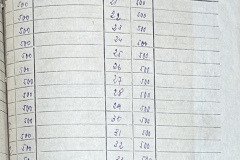 500 21 500
500 22 500
500 23 500
500 24 500
500 25 500
500 26 500
500 27 500
500 28 500
500 29 500
500 30 500
500 31 500
500 32 500
500